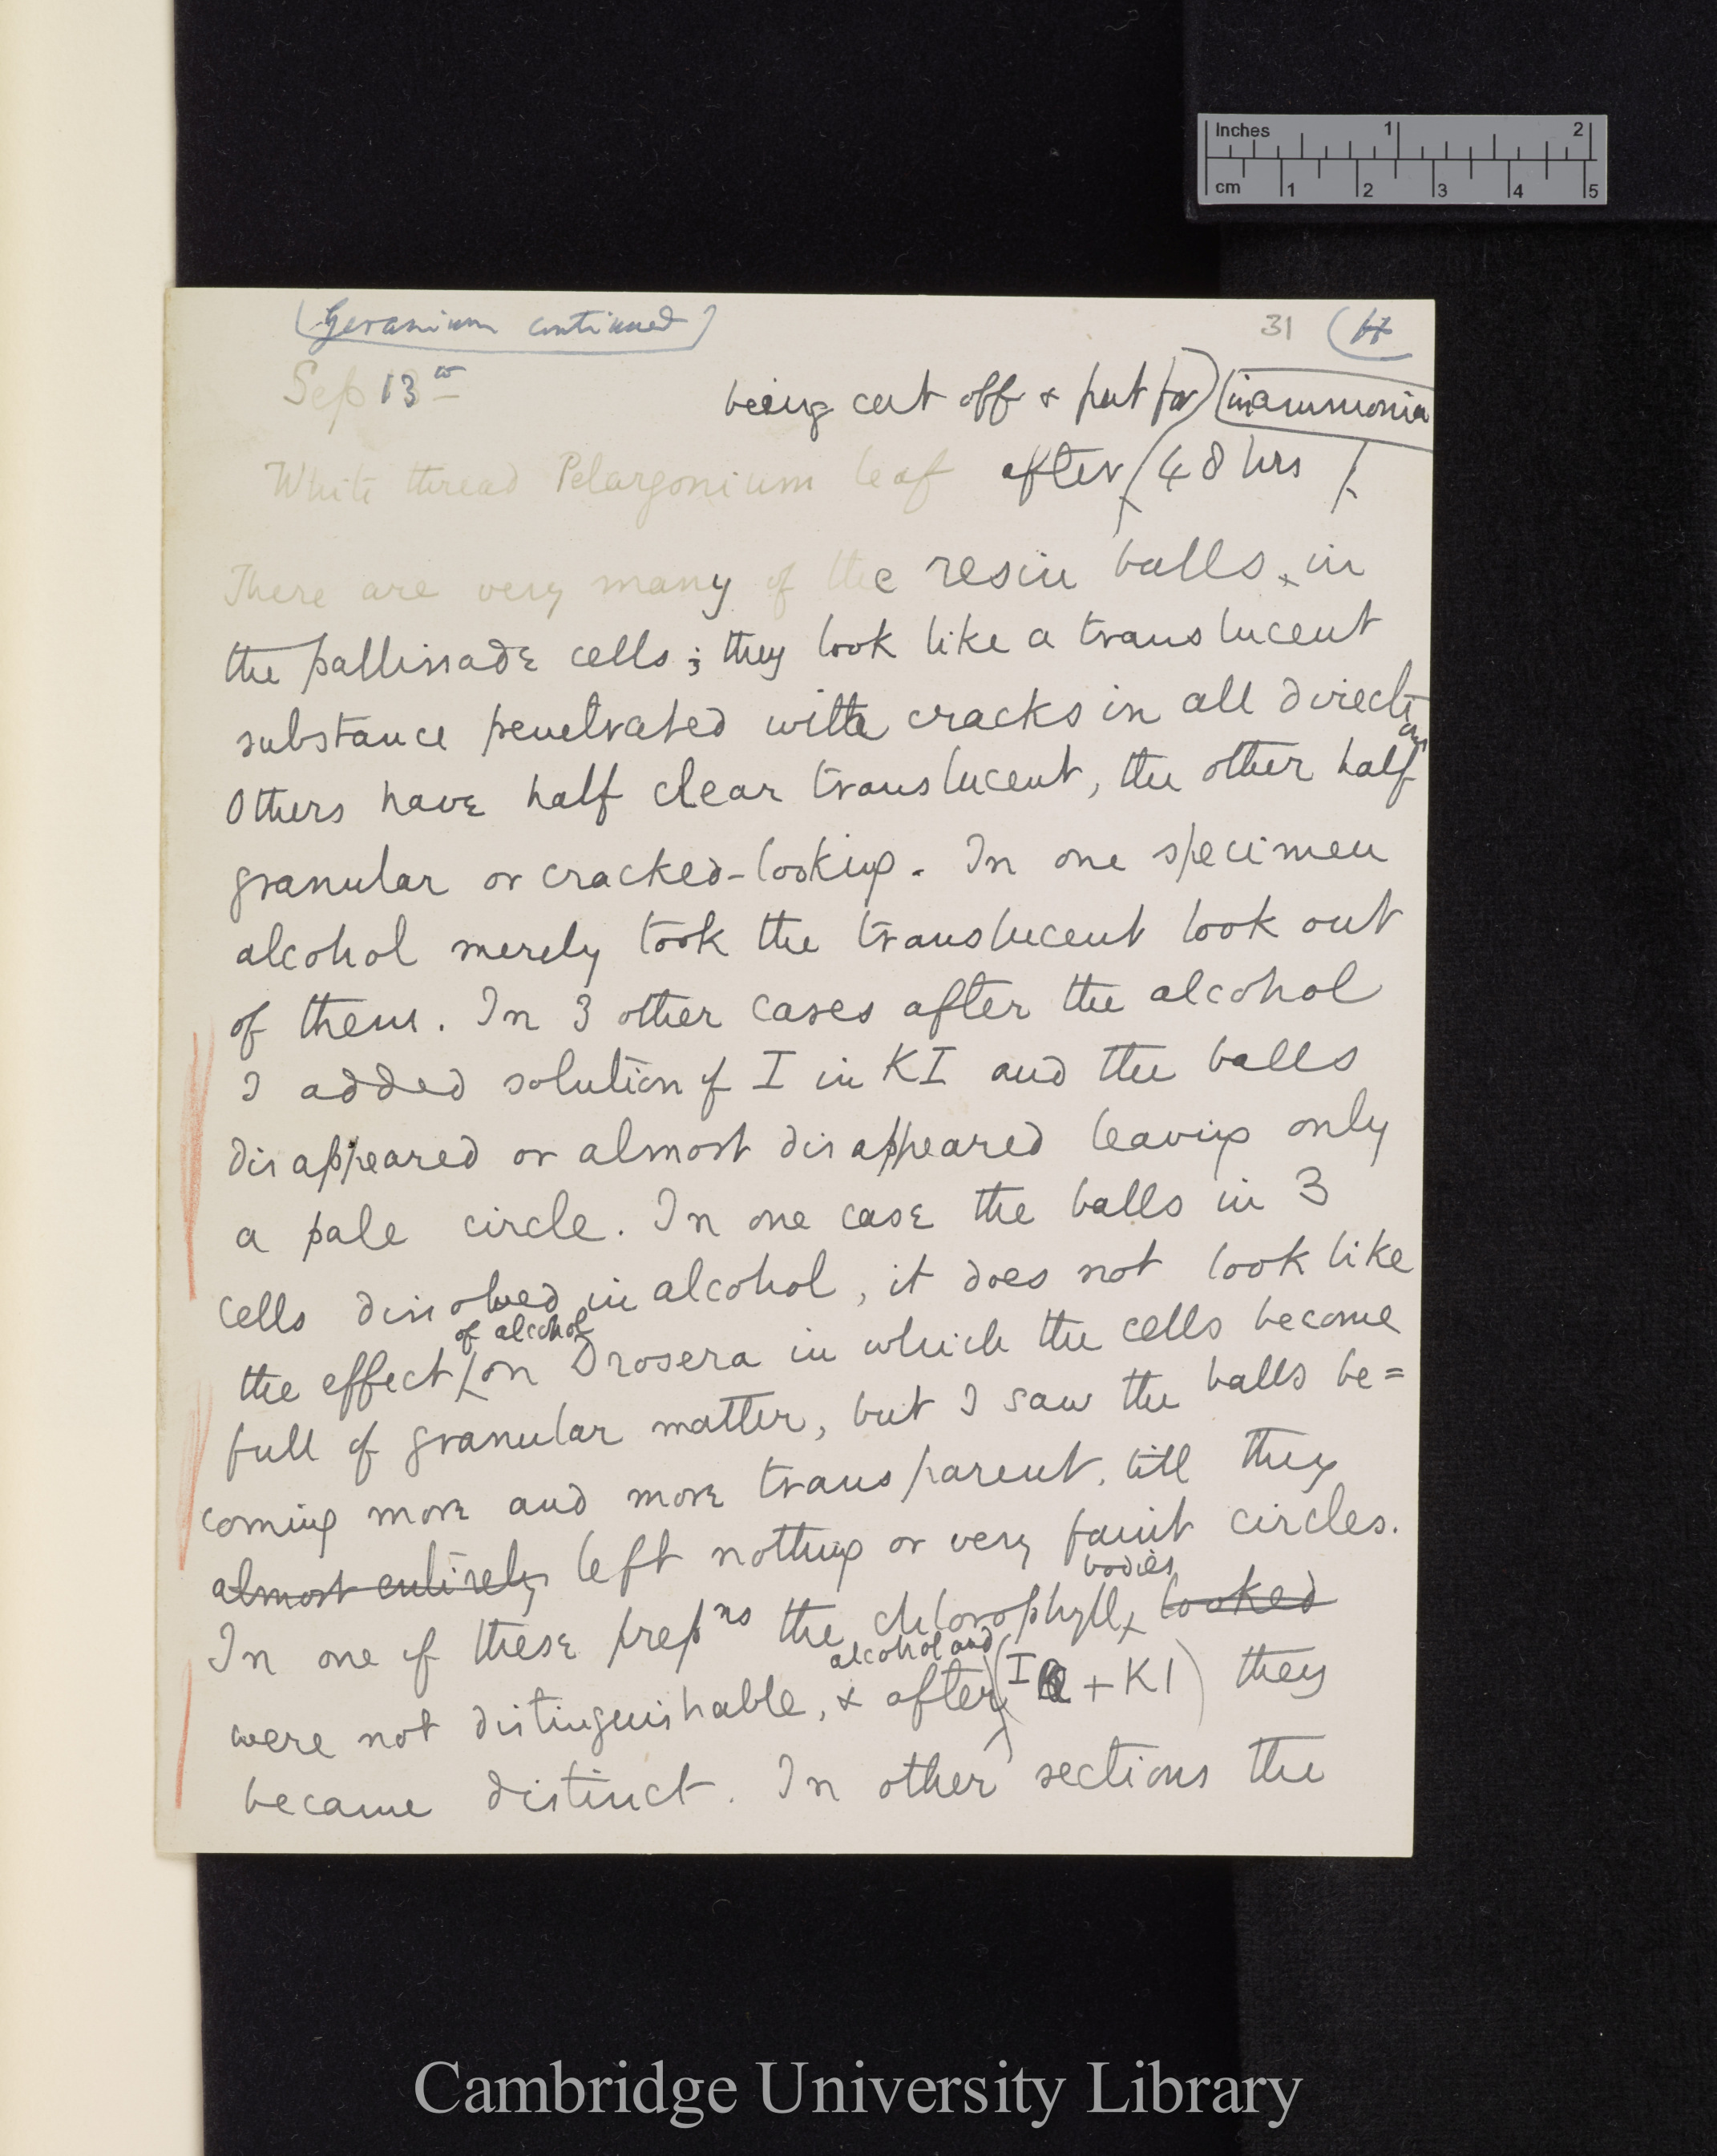 Inches 1 2
cm 1 2 3 4 5
(Geranium continued)
31
Sep 13th
being cut off & put for (in ammonia
White thread Pelargonium leaf after 48 hrs
There are very many of the resin balls in
the pallissade cells; they look like a translucent
substance penetrated with cracks in all directions
Others have half clear translucent, the other half
granular or cracked-looking. In one specimen
alcohol merely took the translucent look out
of them. In 3 other cases after the alcohol
I added solution of I in KI and the balls
disappeared or almost disappeared leaving only
a pale circle. In one case the balls in 3
cells dissolved in alcohol, it does not look like
of alcohol
the effect on Drosera in which the cells become
full of granular matter, but I saw the balls be=
coming more and more transparent, till they
almost entirely left nothing or very faint circles.
bodies
In one of these prepns the chlorophyll looked
alcohol and
were not distinguishable, & after (I + KI) they
became distinct. In other sections the
Cambridge University Library